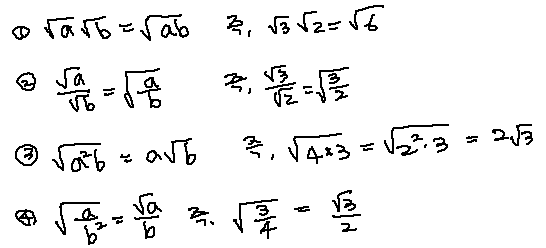 ① √a √b = √ab 즉, √3 √2 = √6
② √a/√b = √(a/b) 즉, √3/√2 = √(3/2)
③ √a²b = a√b 즉, √4×3 = √2²·3 = 2√3
④ √(a/b²) = √a/b 즉, √(3/4) = √3/2